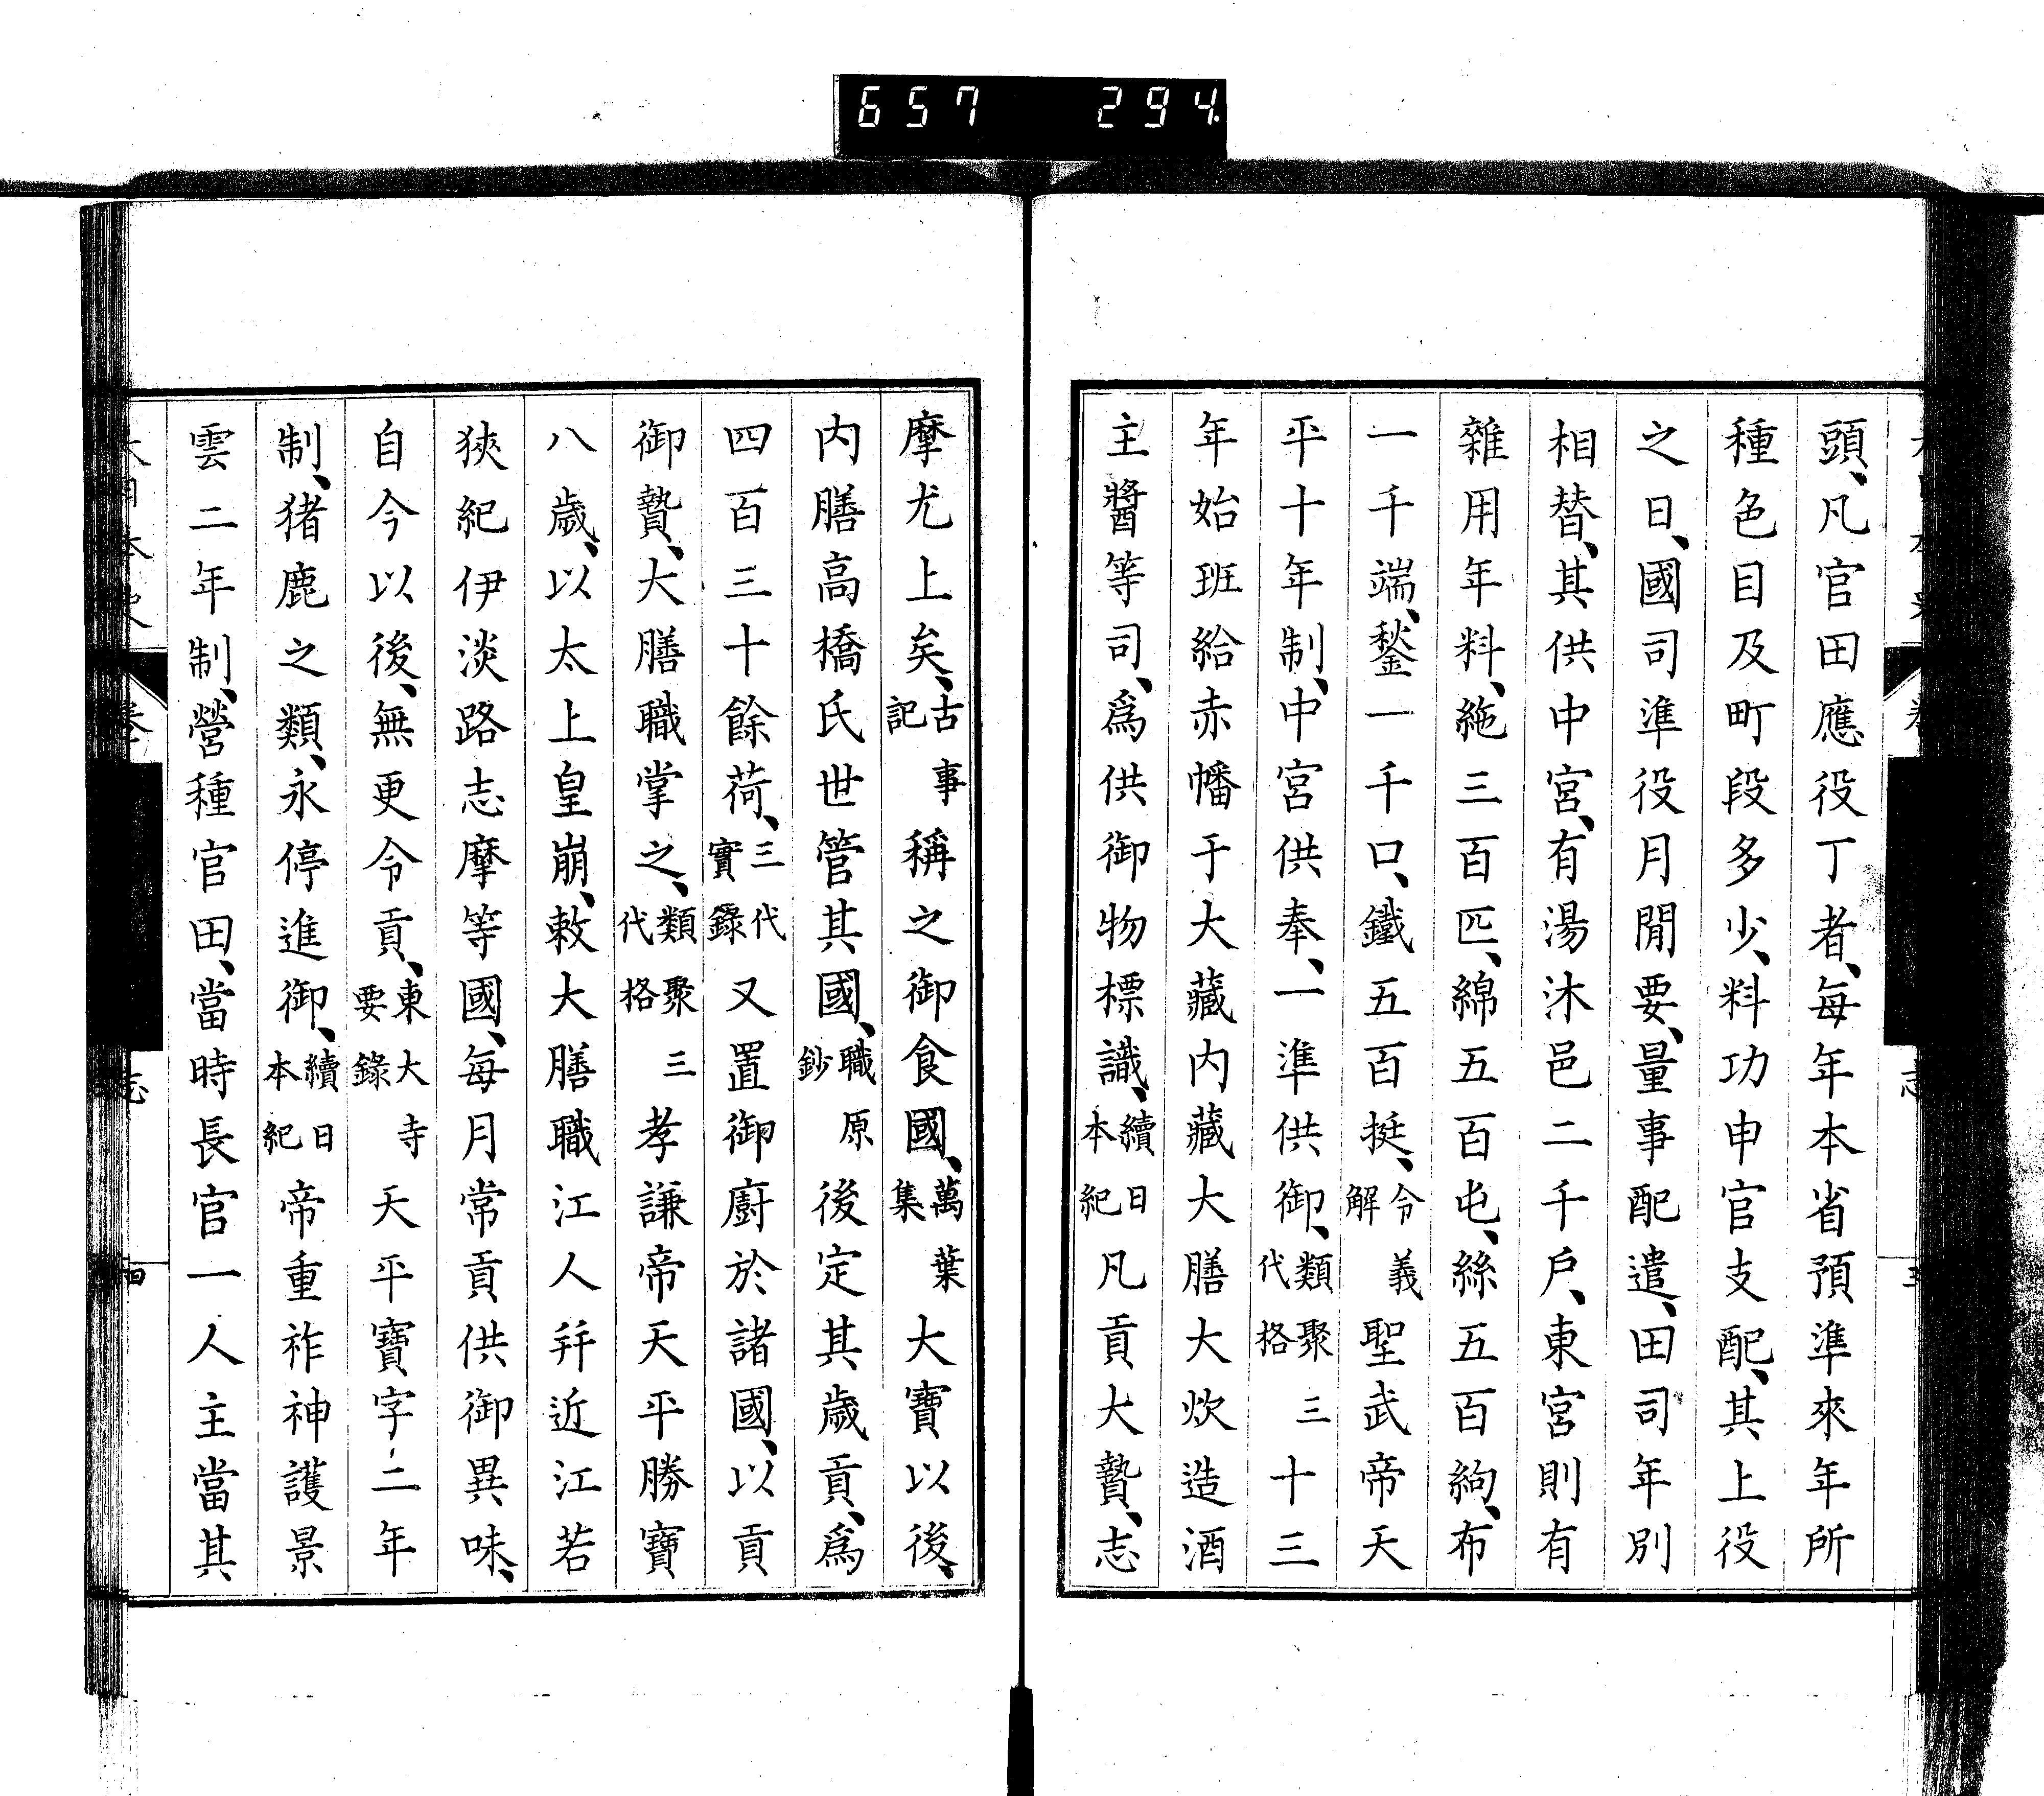 657 294
頭、凡官田應役丁者、每年本省預準來年所
種色目及町段多少、料功申官支配、其上役
之日、國司準役月閒要、量事配遣、田司年別
相替、其供中宮、有湯沐邑二千戶、東宮則有
雜用年料、絁三百匹、綿五百屯、絲五百絇、布
一千端、鍫一千口、鐵五百挺、令義解聖武帝天
平十年制、中宮供奉、一準供御、類聚三代格十三
年始班給赤幡于大藏內藏大膳大炊造酒
主醬等司、爲供御物標識、續日本紀凡貢大贄、志
摩尤上矣、古事記稱之御食國、萬葉集大寶以後、
內膳高橋氏世管其國、職原鈔後定其歲貢、爲
四百三十餘荷、三代實錄又置御廚於諸國、以貢
御贄、大膳職掌之、類聚三代格孝謙帝天平勝寶
八歲、以太上皇崩、敕大膳職江人幷近江若
狹紀伊淡路志摩等國、每月常貢供御異味、
自今以後、無更令貢、東大寺要錄天平寶字二年
制、猪鹿之類、永停進御、續日本紀帝重祚神護景
雲二年制、營種官田、當時長官一人主當其
志